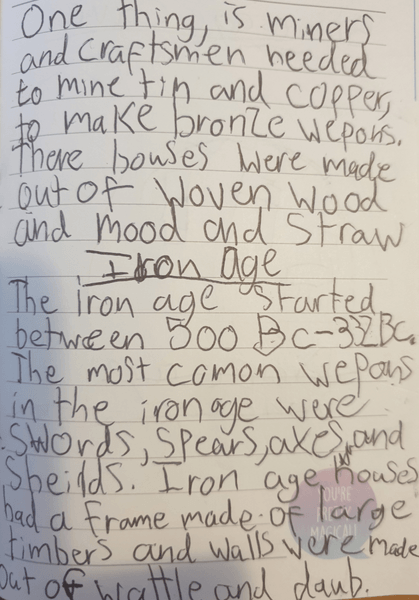 One thing, is miners
and craftsmen needed
to mine tin and copper,
to make bronze wepons.
There houses were made
out of woven wood
and mood and straw
Iron age
The iron age started
between 500 Bc-332Bc.
The most comon wepons
in the iron age were
swords, spears, axes, and
Sheilds. Iron age houses
had a frame made of large
timbers and walls were made
out of wattle and daub.
YOU'RE
MAGICAL!